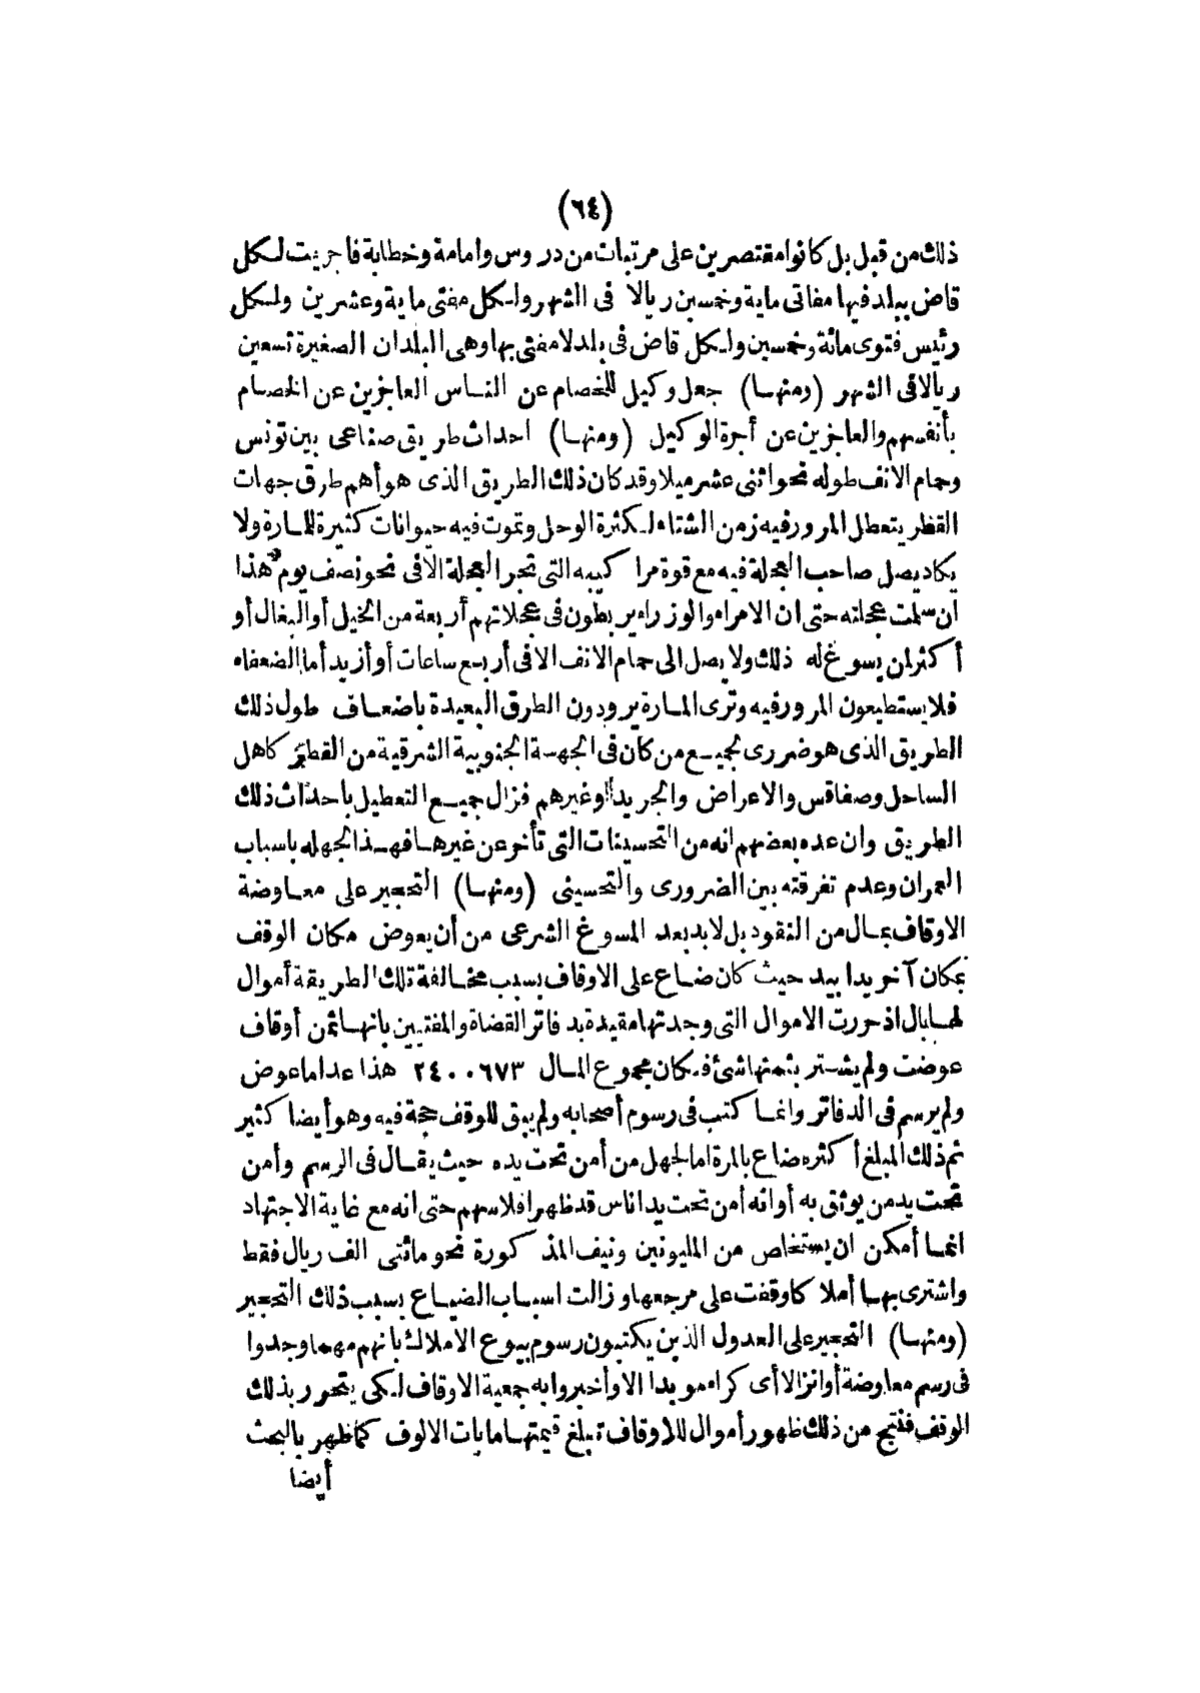 (٦٤)
ذلك من قبل بل كانوا مقتصرين على مرتبات من دروس وامامة وخطابة فاجريت لكل
قاض ببلد فيها مفاتى ماية وخمسين ريالا فى الشهر ولكل مفتى ماية وعشرين ولكل
رئيس فتوى مائة وخمسين ولكل قاض فى بلد لا مفتى بها وهى البلدان الصغيرة تسعين
ريالا فى الشهر (ومنها) جعل وكيل للخصام عن الناس العاجزين عن الخصام
بأنفسهم والعاجزين عن أجرة الوكيل (ومنها) احداث طريق صناعى بين تونس
وحمام الانف طوله نحو اثنى عشر ميلا وقد كان ذلك الطريق الذى هو أهم طرق جهات
القطر يتعطل المرور فيه زمن الشتاء لكثرة الوحل وتموت فيه حيوانات كثيرة للمارة ولا
يكاد يصل صاحب العجلة فيه مع قوة مراكيبه التى تجر العجلة الا فى نحو نصف يوم هذا
ان سلمت عجلته حتى ان الامراء والوزراء يربطون فى عجلاتهم أربعة من الخيل أو البغال أو
أكثر لمن يسوغ له ذلك ولا يصل الى حمام الانف الا فى أربع ساعات أو أزيد أما الضعفاء
فلا يستطيعون المرور فيه وترى المارة يرودون الطرق البعيدة باضعاف طول ذلك
الطريق الذى هو ضرورى لجميع من كان فى الجهة الجنوبية الشرقية من القطر كاهل
الساحل وصفاقس والاعراض والجريد وغيرهم فزال جميع التعطيل باحداث ذلك
الطريق وان عده بعضهم انه من التحسينات التى تأخر عن غيرها فهذا لجهله باسباب
العمران وعدم تفرقته بين الضرورى والتحسينى (ومنها) التحجير على معاوضة
الاوقاف بمال من النقود بل لا بد بعد المسوغ الشرعى من أن يعوض مكان الوقف
بمكان آخر يدا بيد حيث كان ضاع على الاوقاف بسبب مخالفة تلك الطريقة أموال
لها بال اذ حررت الاموال التى وجدتها مقيدة بدفاتر القضاة والمفتيين بانها ثمن أوقاف
عوضت ولم يشتر بثمنها شئ فكان مجموع المال ٢٤٠٠٦٧٣ هذا عدا ما عوض
ولم يرسم فى الدفاتر وانما كتب فى رسوم أصحابه ولم يبق للوقف حجة فيه وهو أيضا كثير
ثم ذلك المبلغ أكثره ضاع بالمرة اما لجهل من أمن تحت يده حيث يقال فى الرسم وأمن
تحت يد من يوثق به أو انه أمن تحت يد اناس قد ظهر افلاسهم حتى انه مع غاية الاجتهاد
انما أمكن ان يستخلص من المليونين ونيف المذكورة نحو مائتى الف ريال فقط
واشترى بها أملاكا وقفت على مرجعها وزالت اسباب الضياع بسبب ذلك التحجير
(ومنها) التحجير على العدول الذين يكتبون رسوم بيوع الاملاك بانهم مهما وجدوا
فى رسم معاوضة أو انزالا أى كراء مويدا الا وأخبروا به جمعية الاوقاف لكى يتحرر بذلك
الوقف فنتج من ذلك ظهور أموال للاوقاف تبلغ قيمتها مايات الالوف كما ظهر بالبحث
أيضا